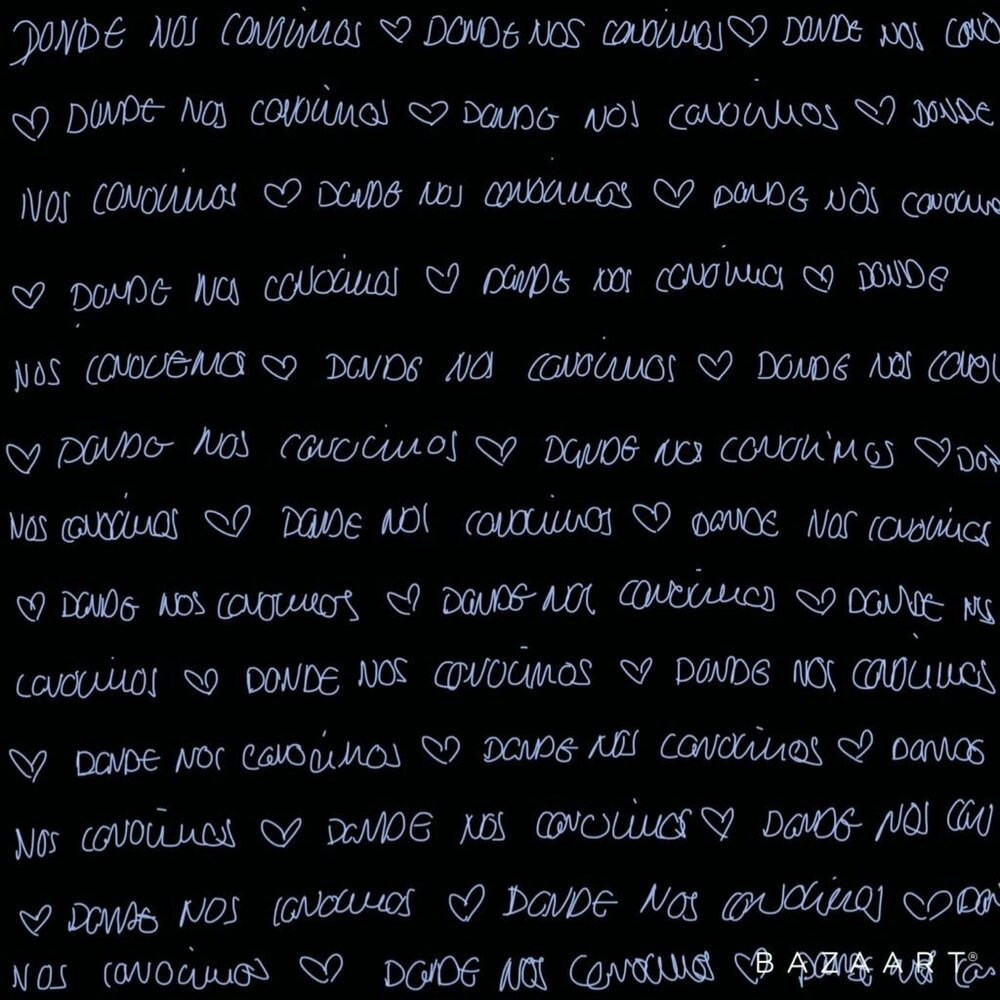 DONDE NOS CONOCIMOS ♡ DONDE NOS CONOCIMOS ♡ DONDE NOS CONO
♡ DONDE NOS CONOCIMOS ♡ DONDE NOS CONOCIMOS ♡ DONDE
NOS CONOCIMOS ♡ DONDE NOS CONOCIMOS ♡ DONDE NOS CONOCIMO
♡ DONDE NOS CONOCIMOS ♡ DONDE NOS CONOCIMOS ♡ DONDE
NOS CONOCEMOS ♡ DONDE NOS CONOCIMOS ♡ DONDE NOS CONOCI
♡ DONDE NOS CONOCIMOS ♡ DONDE NOS CONOCIMOS ♡ DON
NOS CONOCIMOS ♡ DONDE NOS CONOCIMOS ♡ DONDE NOS CONOCIMOS
♡ DONDE NOS CONOCIMOS ♡ DONDE NOS CONOCIMOS ♡ DONDE NOS
CONOCIMOS ♡ DONDE NOS CONOCIMOS ♡ DONDE NOS CONOCIMOS
♡ DONDE NOS CONOCIMOS ♡ DONDE NOS CONOCIMOS ♡
NOS CONOCIMOS ♡ DONDE NOS CONOCIMOS ♡ DONDE NOS CON
♡ DONDE NOS CONOCIMOS ♡ DONDE NOS CONOCIMOS ♡ DON
NOS CONOCIMOS ♡ DONDE NOS CONOCIMOS ♡ DONDE NOS CO
BAZAART®